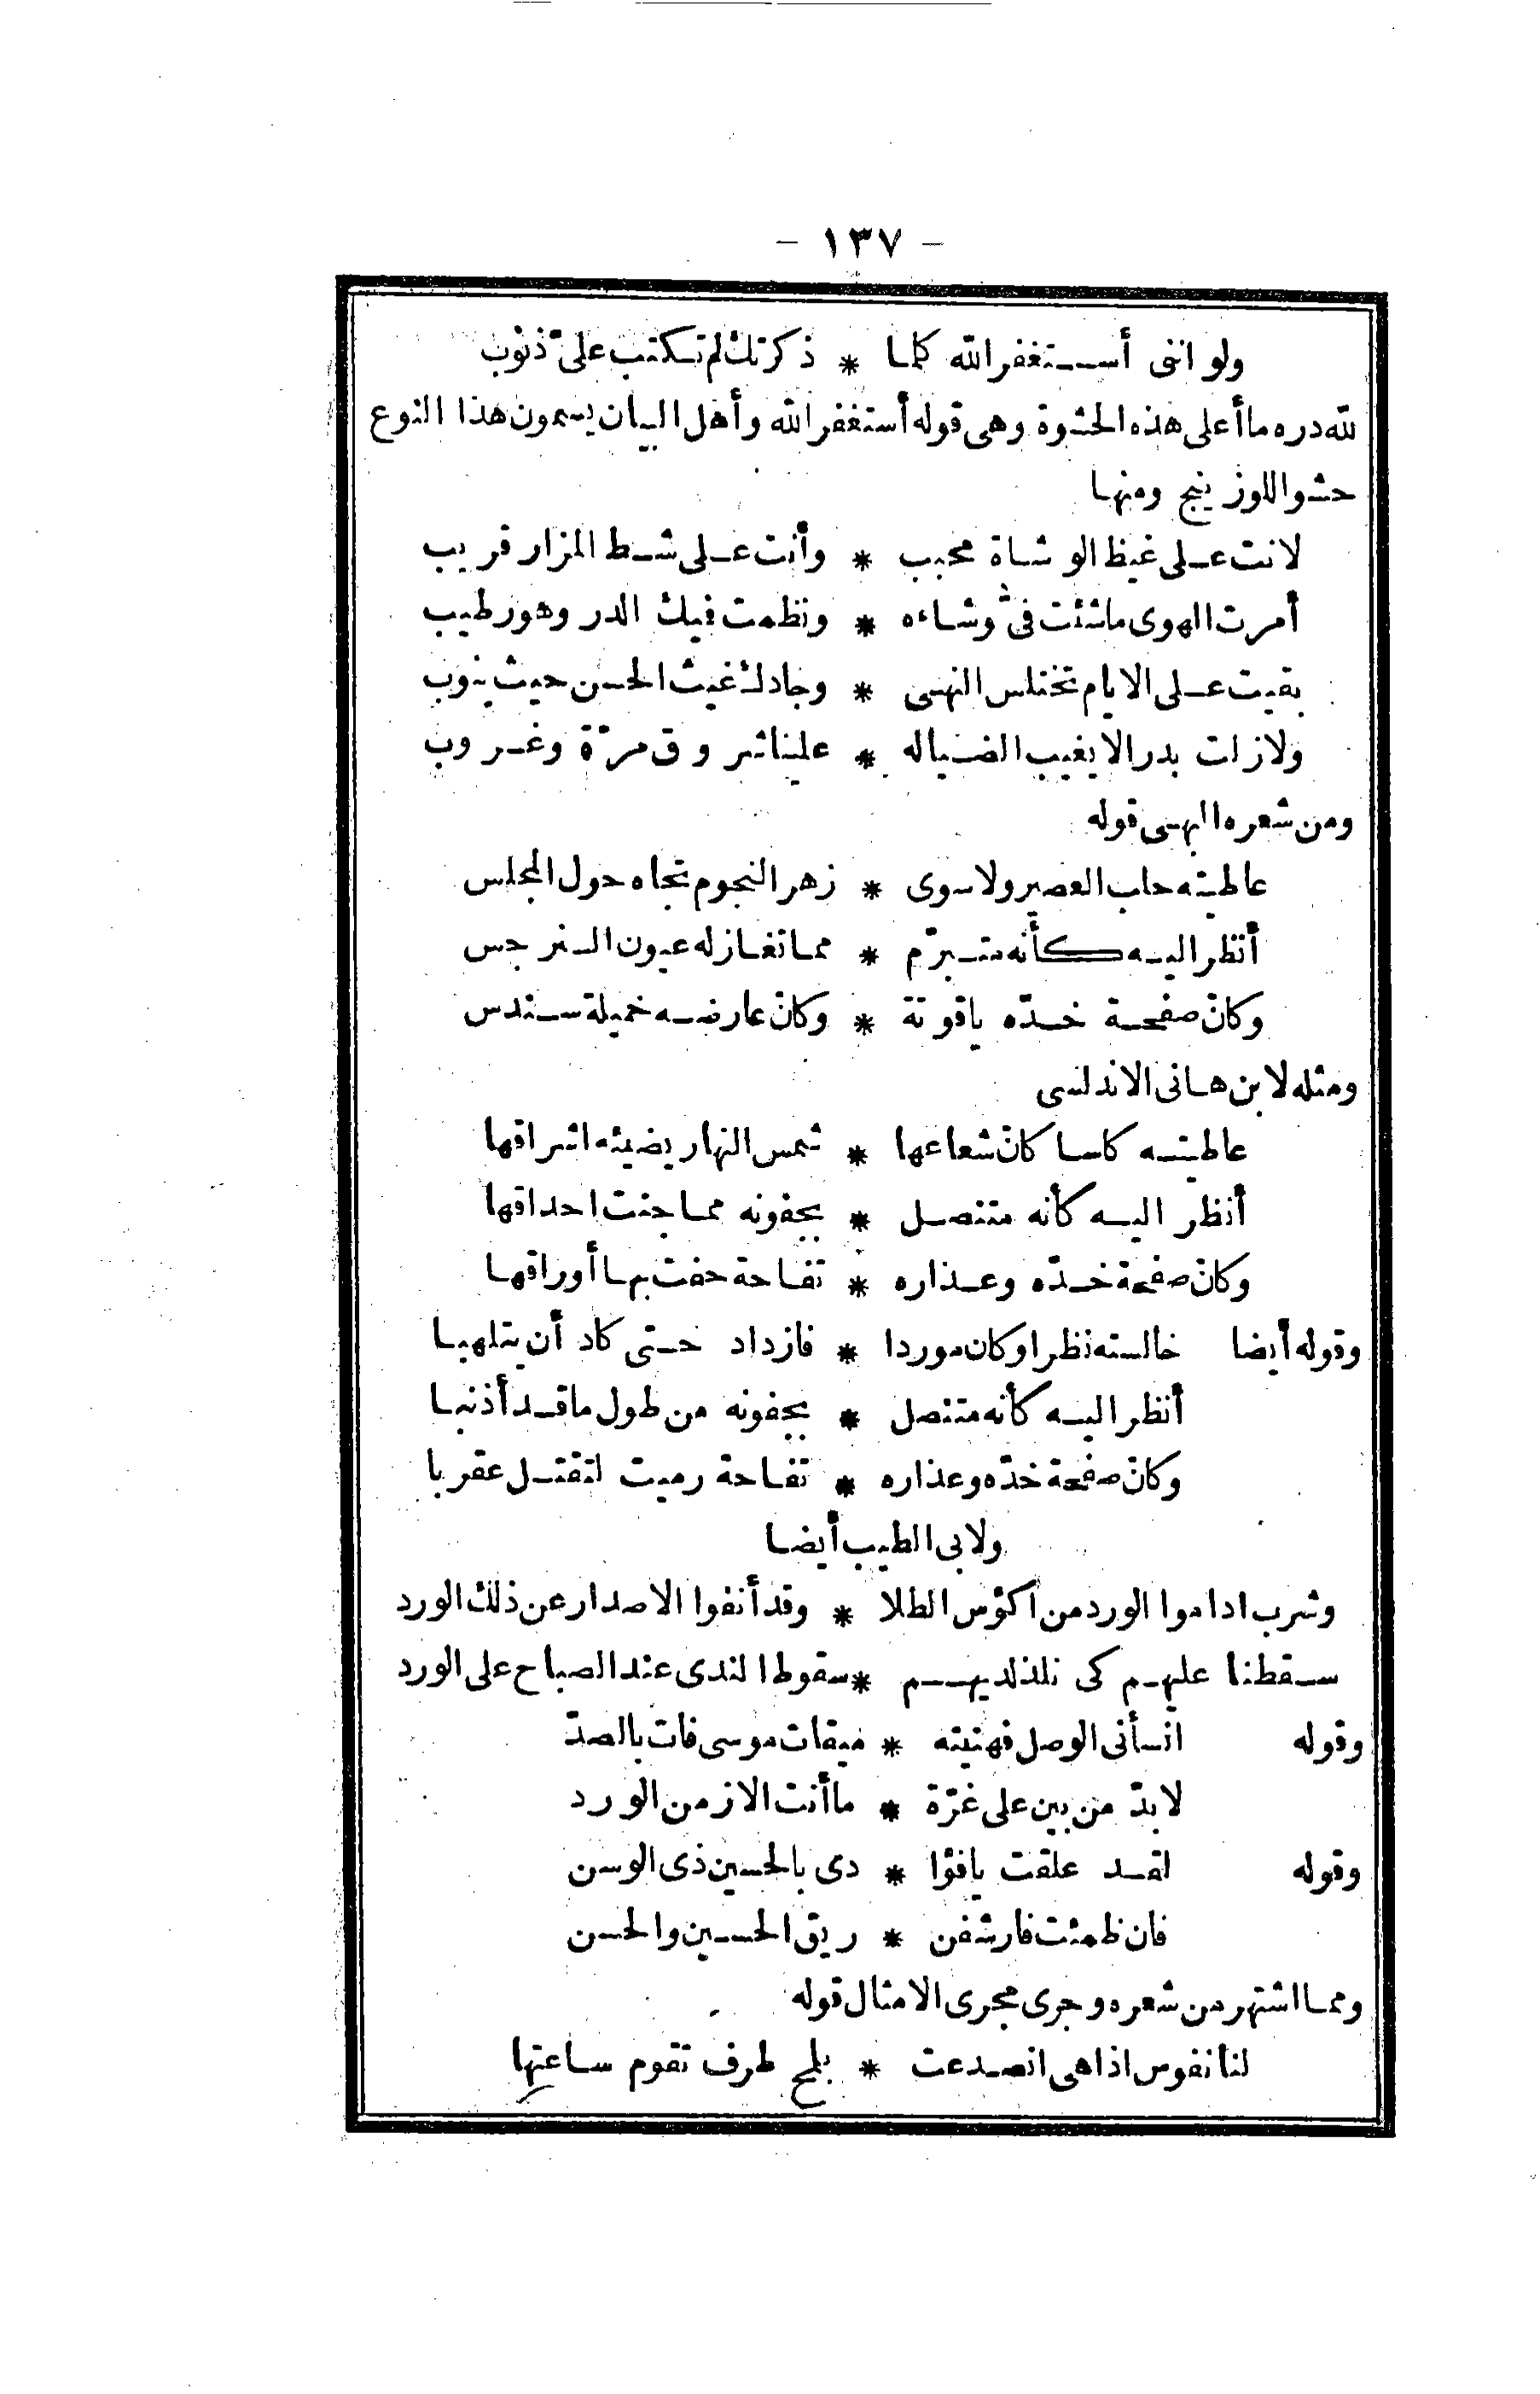 - ١٣٧ -
ولو اننى أستغفر الله كلما * ذكرتك لم تكتب على ذنوب
لله دره ما أعلى هذه الحشوة وهى قوله أستغفر الله وأهل البيان يسمون هذا النوع
حشو اللوزينج ومنها
لانت على غيظ الوشاة محبب * وأنت على شط المزار قريب
أمرت الهوى ما شئت فىّ وشاءه * ونظمت فيك الدر وهو رطيب
بقيت على الايام تختلس النهى * وجادك غيث الحسن حيث ينوب
ولازلت بدرا لا يغيب الضياله * علينا شروق مرّة وغروب
ومن شعره البهى قوله
عاطيته حلب العصير ولا سوى * زهر النجوم تجاه حول المجلس
أنظر اليه كأنه متبرّم * مما تغازله عيون النرجس
وكانّ صفحة خدّه ياقوتة * وكانّ عارضه خميلة سندس
ومثله لابن هانى الاندلسى
عاطيته كاسا كانّ شعاعها * شمس النهار يضيئه اشراقها
أنظر اليه كأنه متنصل * بجفونه مما جنت احداقها
وكانّ صفحة خدّه وعذاره * تفاحة حفت بها أوراقها
وقوله أيضا خالسته نظرا وكان موردا * فازداد حتى كاد أن يتلهبا
أنظر اليه كأنه متنصل * بجفونه من طول ما قد أذنبا
وكانّ صفحة خدّه وعذاره * تفاحة رميت لتقتل عقربا
ولابى الطيب أيضا
وشرب اداموا الورد من اكؤس الطلا * وقد أنفوا الاصدار عن ذلك الورد
سقطنا عليهم كى نلذ لديهم * سقوط الندى عند الصباح على الورد
وقوله انسأنى الوصل فهنيته * ميقات موسى فات بالصدّ
لا بدّ من بين على غرّة * ما أنت الا زمن الورد
وقوله لقد علقت يا فؤا * دى بالحسين ذى الوسن
فان ظمئت فارشفن * ريق الحسين والحسن
ومما اشتهر من شعره وجرى مجرى الامثال قوله
لنا نفوس اذا هى انصدعت * بلمح طرف تقوم ساعتها